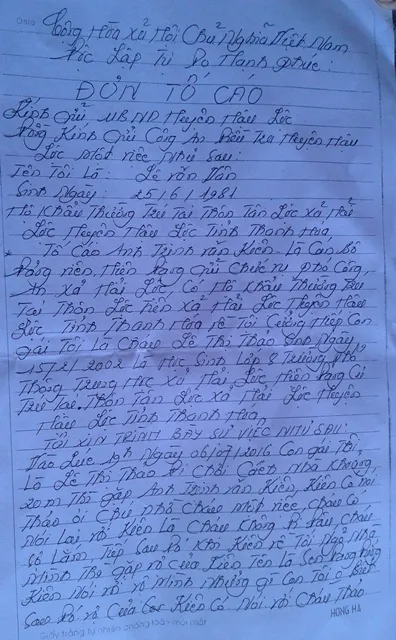 Cộng Hòa Xã Hội Chủ Nghĩa Việt Nam
Độc Lập Tự Do Hạnh Phúc:
ĐƠN TỐ CÁO
Kính Gửi, UBND Huyện Hậu Lộc
Đồng Kính Gửi Công An Điều Tra Huyện Hậu
Lộc một việc Như Sau:
Tên Tôi Là: Lê Văn
Sinh Ngày: 25/6/1981
Hộ Khẩu Thường Trú Tại Thôn Tân Lộc Xã Hải
Lộc Huyện Hậu Lộc Tỉnh Thanh Hóa
Tố Cáo Anh Trịnh Văn Kiên Là Cán Bộ
Đảng Viên, Hiện Đang Giữ Chức vụ Phó Công,
An Xã Hải Lộc, Có Hộ Khẩu Thường Trú
Tại Thôn Lộc Tiến Xã Hải Lộc Huyện Hậu
Lộc Tỉnh Thanh Hóa về Tội Cưỡng Hiếp Con
gái Tôi Là Cháu Lê Thị Thảo Sinh Ngày,
15/2/2002 Là Học Sinh Lớp 8 Trường Phổ
Thông Trung Học Xã Hải Lộc Hiện Đang Cư
Trú Tại. Thôn Tân Lộc Xã Hải Lộc Huyện
Hậu Lộc Tỉnh Thanh Hóa
TÔI XIN TRÌNH BÀY SỰ VIỆC NHƯ SAU:
Vào Lúc Ngày 06/07/2016 Con gái Tôi,
Là Lê Thị Thảo Đi Chơi Cách Nhà Khoảng,
20m Thì gặp Anh Trịnh Văn Kiên, Kiên Có nói
Thảo ơi Chú Nhờ Cháu Một việc, Cháu Có
Nói Lại với Kiên Là Cháu Không Đi đâu, Cháu
Sợ Lắm, Tiếp Sau Đó Khi Kiên về Tới Ngõ Nhà
Mình Thì Gặp vợ của Kiên Tên là Sen Đang Đứng
Kiên Nói với vợ Mình Nhưng gì Con Tôi Biết
Sau Đó vợ Của Kiên Có Nói với Cháu Thảo
Giấy trắng tự nhiên chống lóa - mỏi mắt
HONG HA